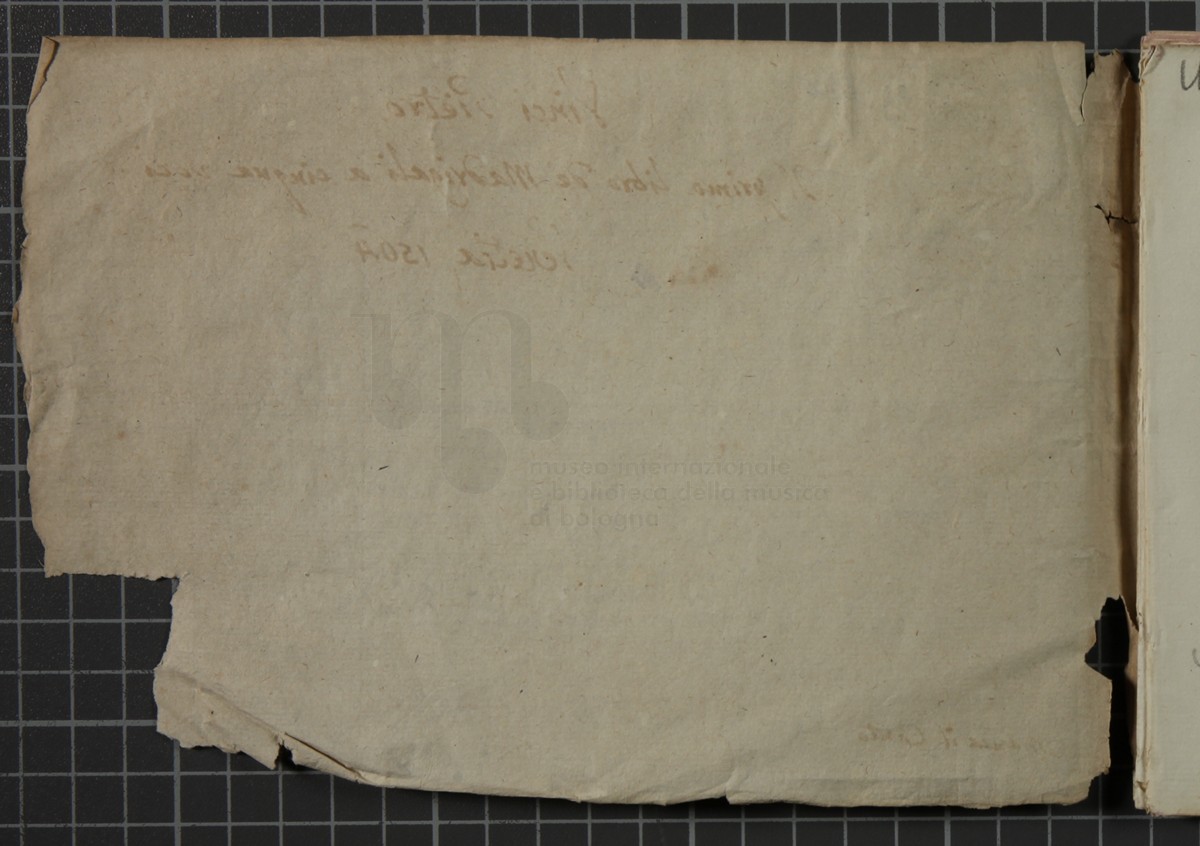 Vinci Pietro
Il primo libro de Madrigali a cinque voci
Venetia 1564
museo internazionale
e biblioteca della musica
di bologna
manca il Canto